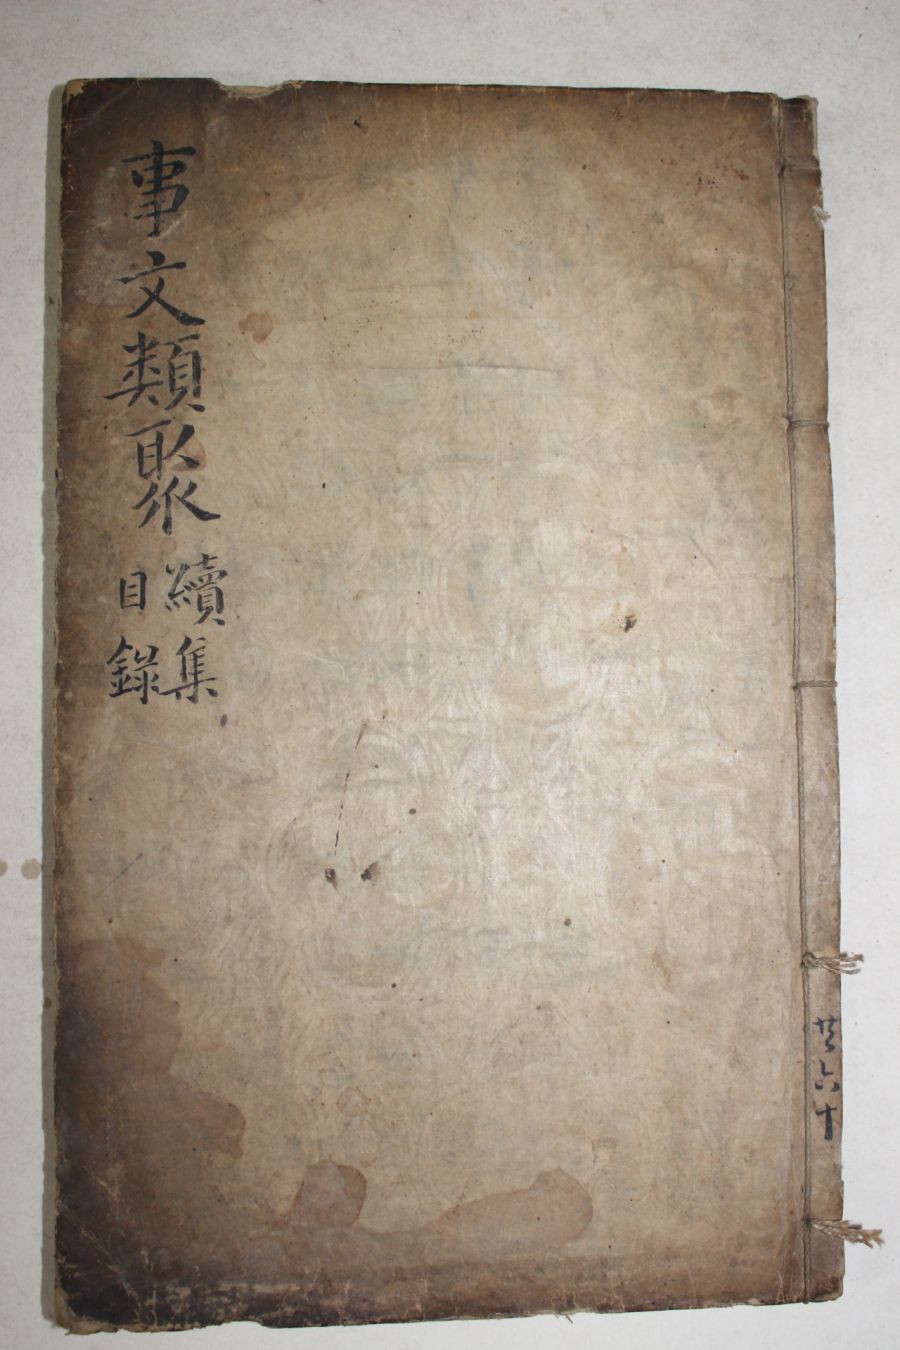 事文類聚
續集
目錄
共六十